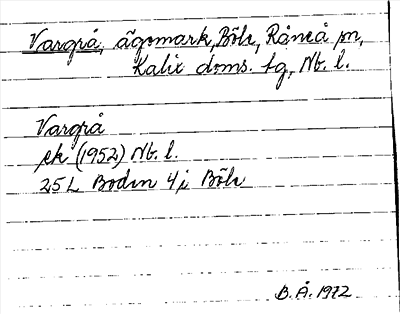 Vargrå, ägomark, Böle, Råneå sn,
Kalix doms. tg, Nb. l.
Vargrå
ek (1952) Nb. l.
25L Boden 4j Böle
B.Å. 1972